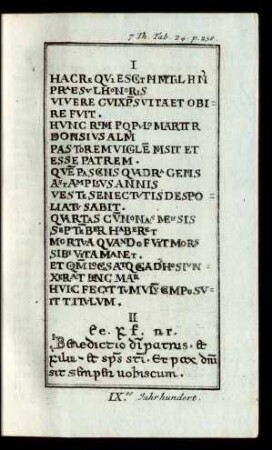 7 Th. Tab. 24. p. 258.
I
HAC REQVIESCET
PRAESVL HONORIS
VIVERE CVI XPS VITA ET OBI
RE FVIT.
HVNC REM POPVLO MARTIR
DONSIVS ALM
PASTOREM VIGILE MISIT ET
ESSE PATREM.
QVE PASCENS QVADRAGENIS
AVT AMPLIVS ANNIS
VESTE SENECTVTIS DESPO
LIATV SABIT.
QVARTAS MENSIS
SEPTEBER HABERET
MORTVA QVANDO FVIT MORS
SIBI VITA MANET.
ET
XERAT HINC MAR
HVIC FECIT TVMVL TEMPO SV
IT TITVLVM.
II
Benedictio di patris. et
filii. et sps sti. Et pax dni
sit semper vobiscum.
IX.tes Jahrhundert.